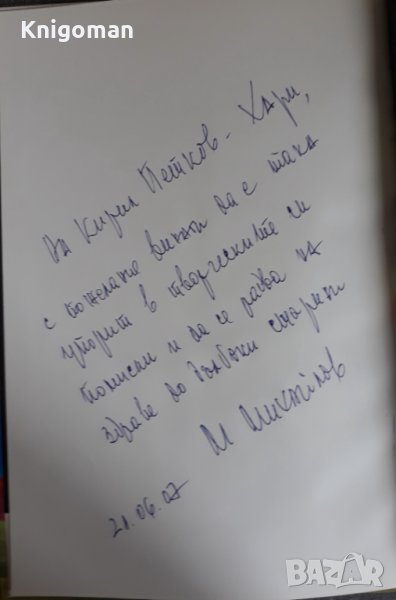 Knigoman
На Кирил Петков - Хари,
с пожелание винаги да е така
упорит в творческите си
помисли и да се радва на
здраве до дълбоки старини
М Михайлов
21.06.07
BAZAR